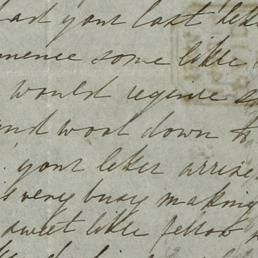 had your last letter
mence some little
would require s
and wool down to
your letter arrive
s very busy making
sweet little fellow